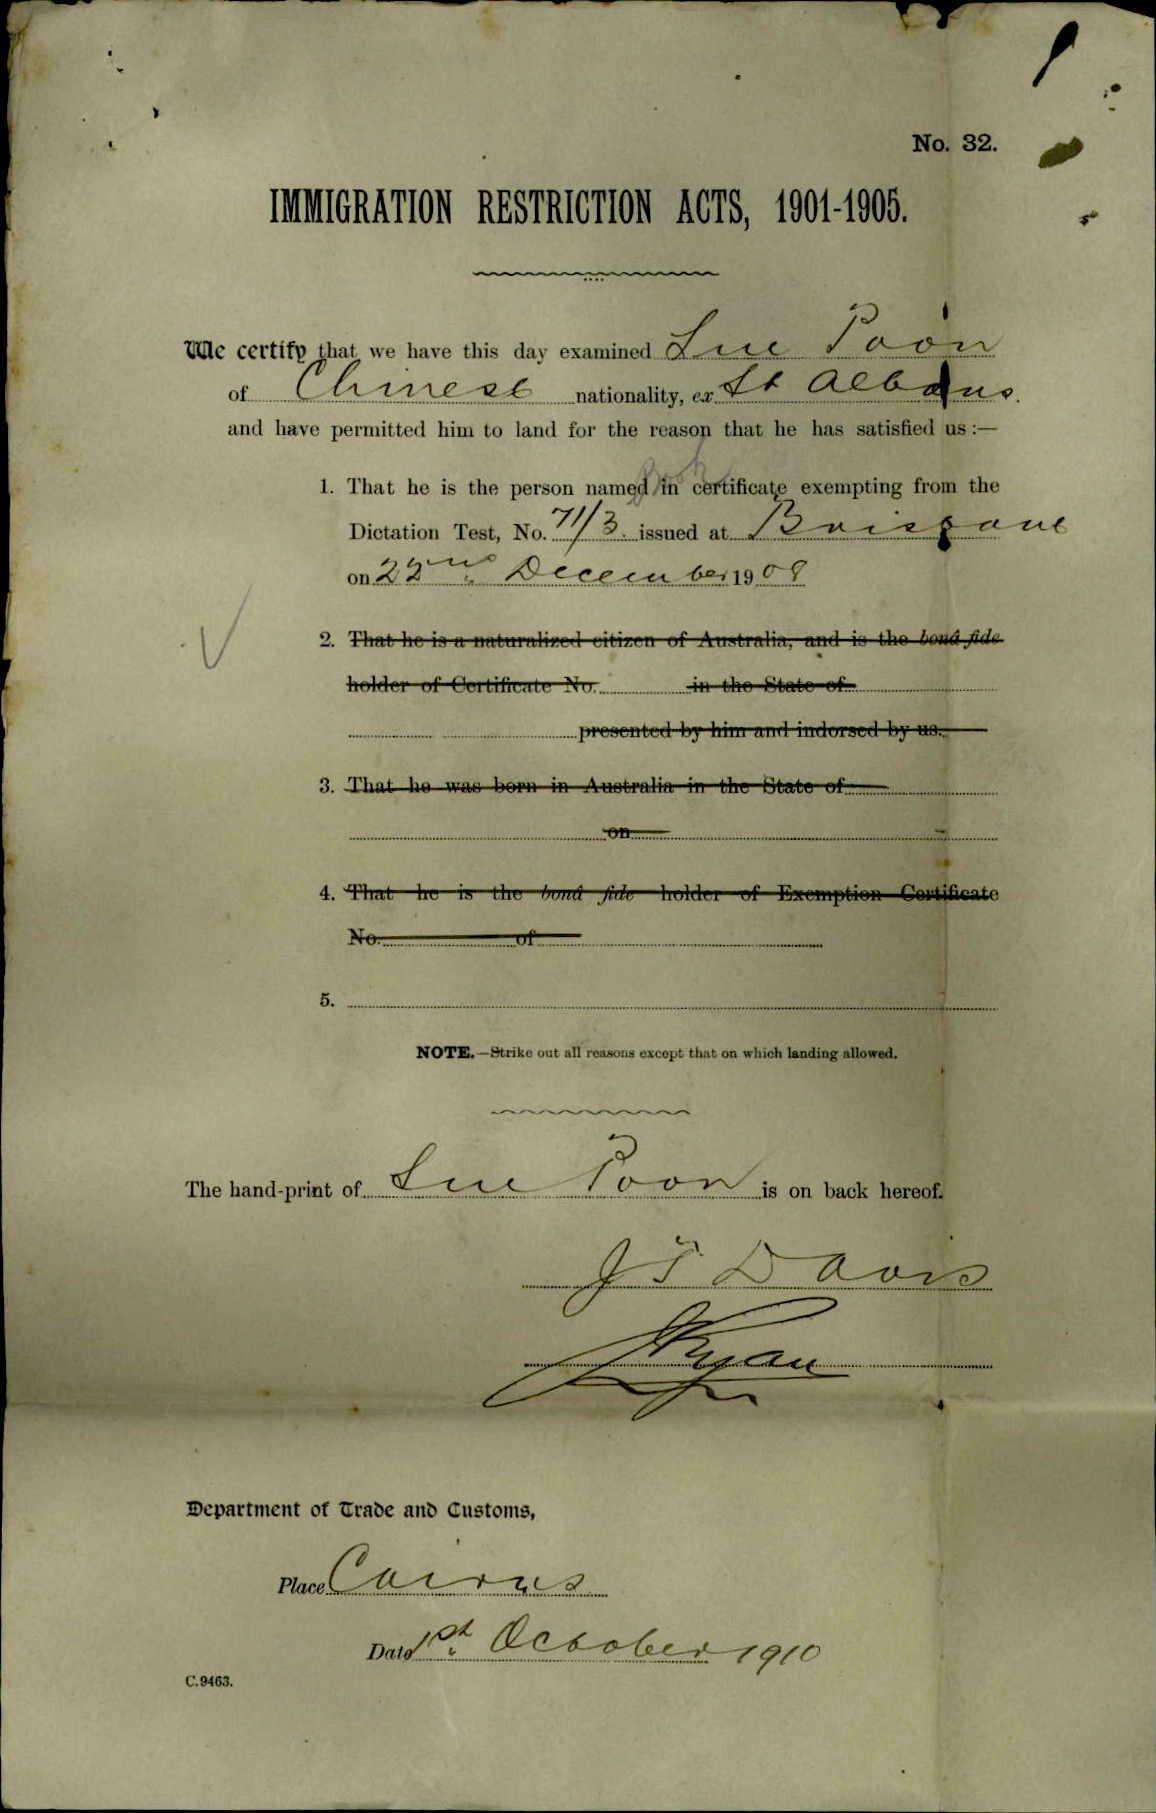 No. 32.
IMMIGRATION RESTRICTION ACTS, 1901-1905.
We certify that we have this day examined Sue Poon
of Chinese nationality, ex St Albans.
and have permitted him to land for the reason that he has satisfied us :—
Book
1. That he is the person named in certificate exempting from the
Dictation Test, No. 71/3. issued at Brisbane
on 22nd December 1908
2. That he is a naturalized citizen of Australia, and is the bonâ fide
holder of Certificate No. in the State of
presented by him and indorsed by us.
3. That he was born in Australia in the State of
on
4. That he is the bonâ fide holder of Exemption Certificate
No. of
5.
NOTE.—Strike out all reasons except that on which landing allowed.
The hand-print of Sue Poon is on back hereof.
J T Davis
Ryan
Department of Trade and Customs,
Place Cairns
Date 1st October 1910
C.9463.